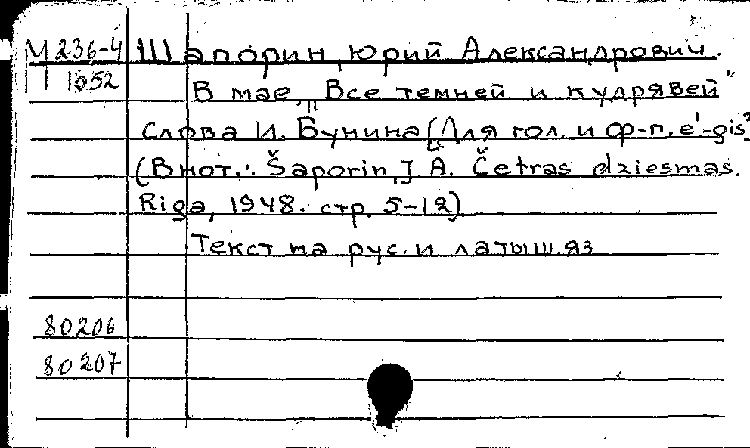 М 236-4 Шапорин, Юрий Александрович.
1052 В мае, „Все темней и кудрявей"
Слова И. Бунина [Для гол. и ф-п. e'-gis²]
(В нот.: Šaporin, J. A. Četras dziesmas.
Riga, 1948. стр. 5-12)
Текст на рус. и латыш. яз
80206
80207